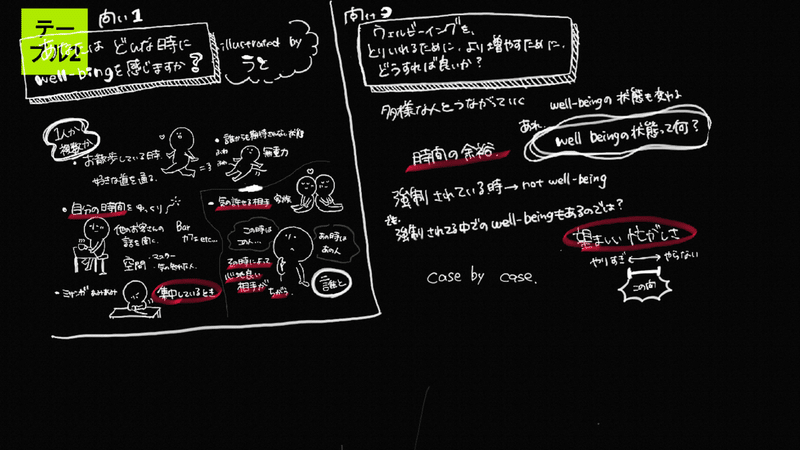 テー
ブル2
問い1
あなたは どんな時に
well-beingを感じますか?
illustrated by
うと
1人か
複数か
・お散歩している時
好きな道を通る.
=3
・誰からも期待されない状態
ふわ
ふわ
無重力
・自分の時間をゆっくり
他のお客さんの
話を聞く.
Bar
カフェ etc...
空間
マスター
・気の許せる相手
家族
この時は
この人...
あの時は
あの人
その時によって
心地良い
相手が
ちがう.
誰と
集中しているとき
問い2
ウェルビーイングを、
とりいれるために、より増やすために、
どうすれば良いか?
多様な人とつながっていく
well-beingの状態も変わる
あれ
well beingの状態って何?
時間の余裕.
強制されている時→not well-being
強制されてる中でのwell-beingもあるのでは?
望ましい忙がしさ
やりすぎ ←→ やらない
この間
case by case.